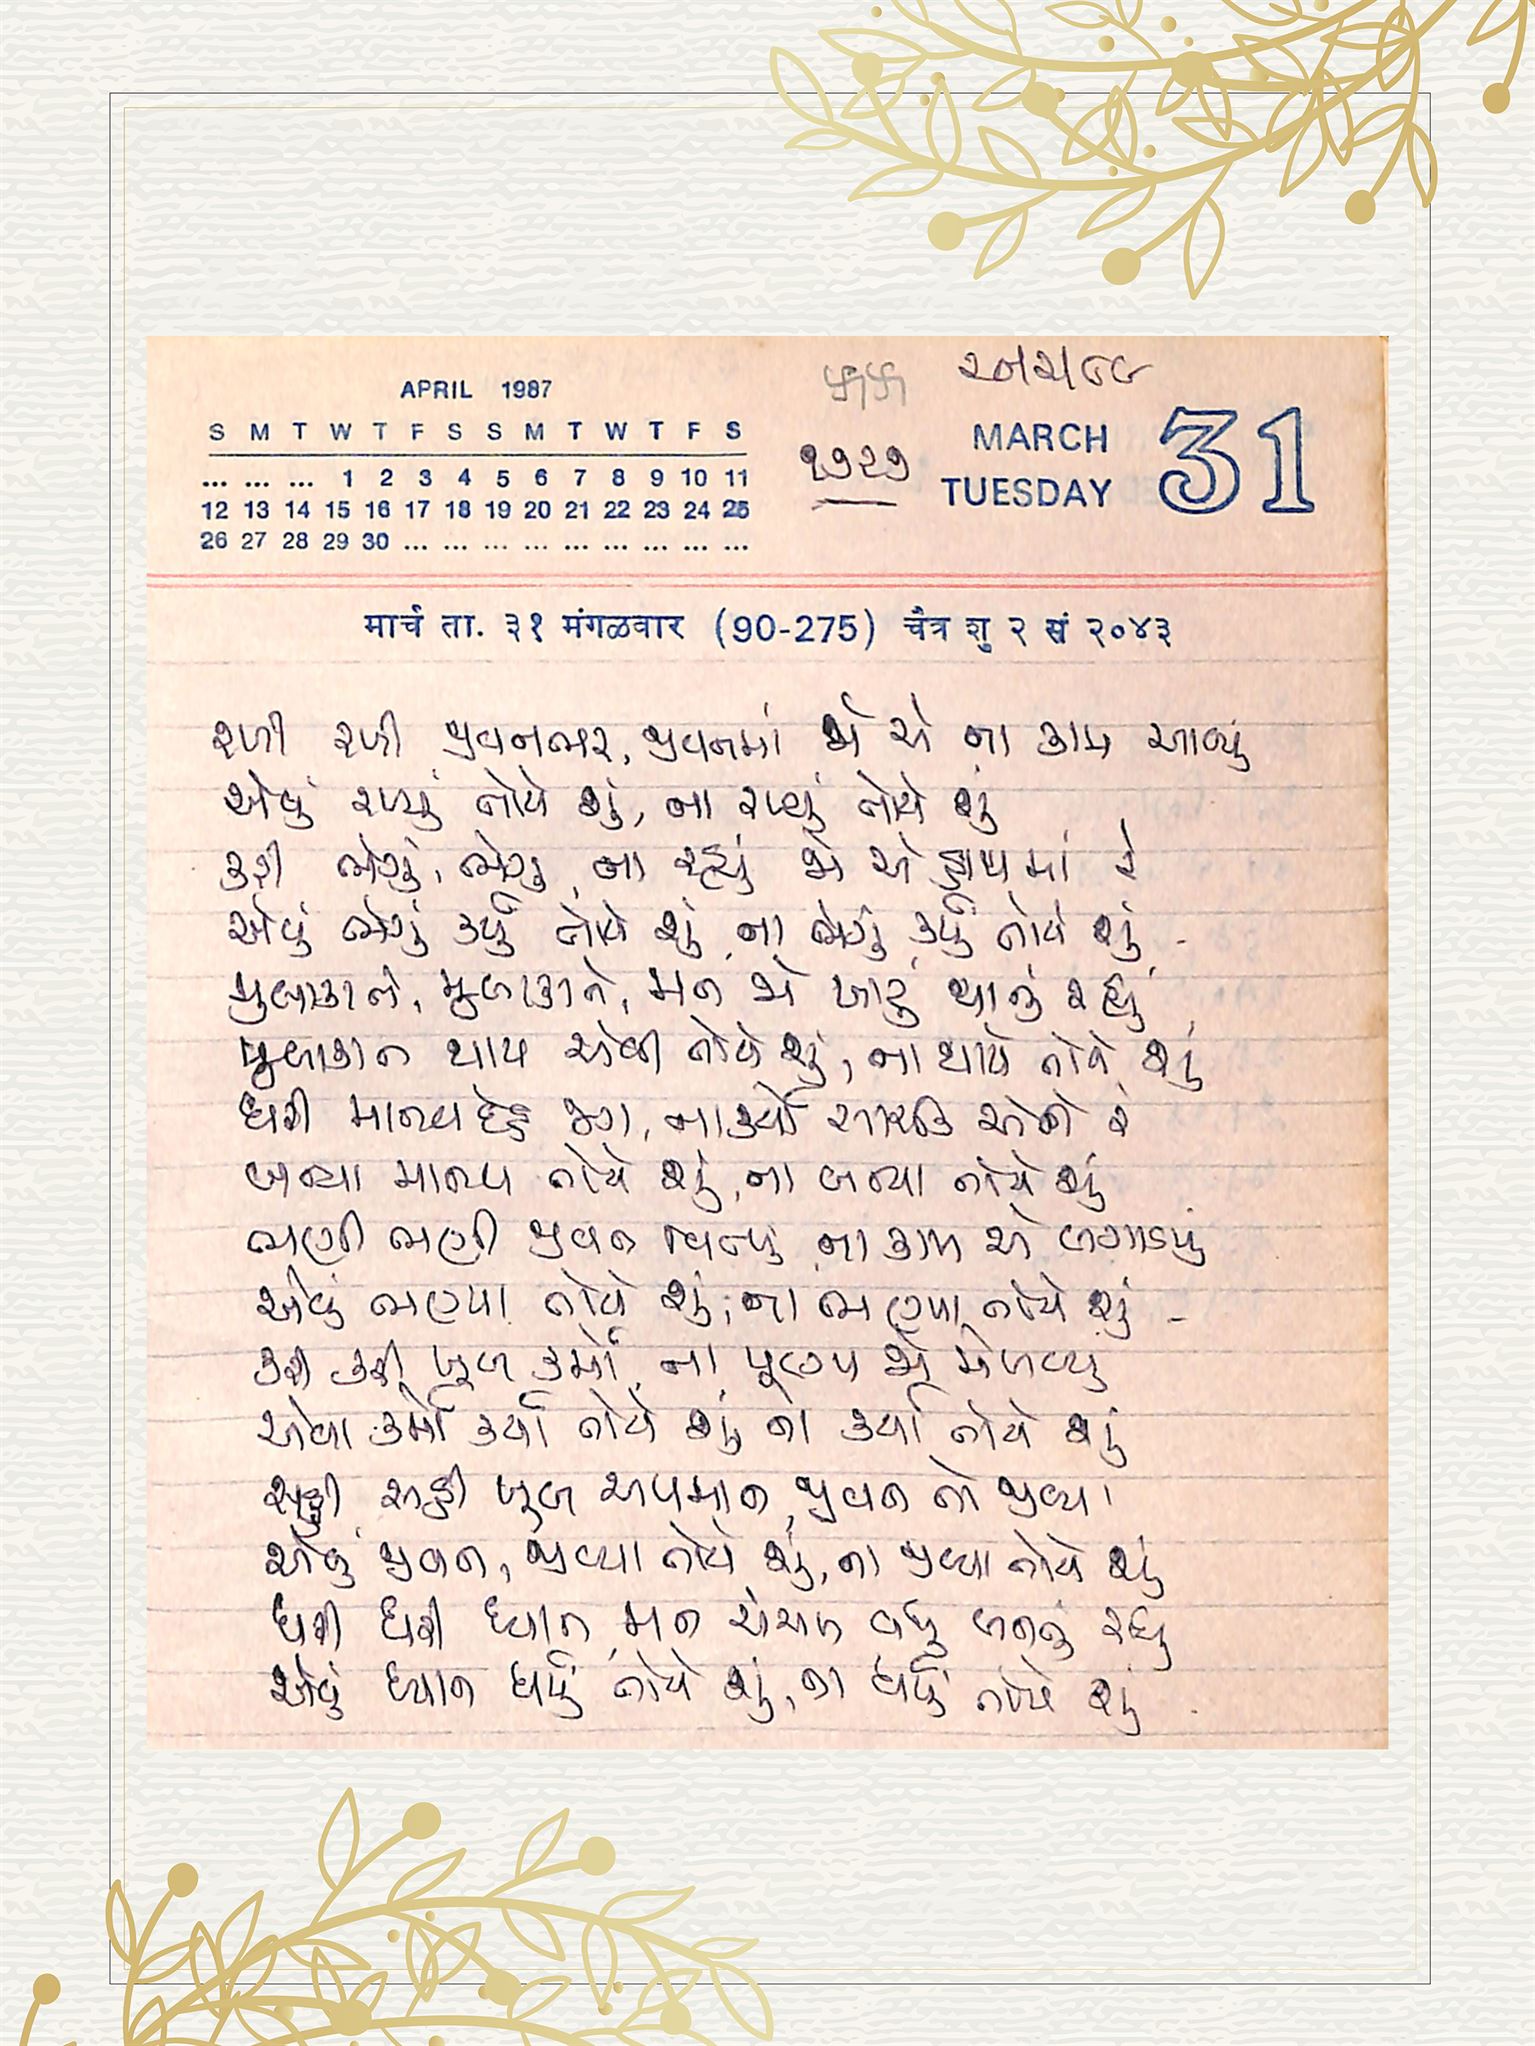 APRIL 1987
S M T W T F S S M T W T F S
... ... ... 1 2 3 4 5 6 7 8 9 10 11
12 13 14 15 16 17 18 19 20 21 22 23 24 25
26 27 28 29 30 ... ... ... ... ... ... ... ... ...
૧૭૨૭
MARCH
TUESDAY
31
मार्च ता. ३१ मंगळवार (90-275) चैत्र शु २ सं २०४३
રળી રળી જીવનભર, જીવનમાં જો એ ના કામ આવ્યું
એવું રળ્યું તોયે શું, ના રળ્યું તોયે શું
કરી ભેગું, ભેગુ, ના રહ્યું જો એ હાથમાં રે
એવું ભેગું કર્યું તોયે શું, ના ભેગું કર્યું તોયે શું -
મુલાકાતે, મુલાકાતે, મન જો ખાટું થાતું રહ્યું
મુલાકાત થાય એવી તોયે શું, ના થાયે તોયે શું
ધરી માનવદેહ જગ, ના કર્યો સાર્થક એને રે
બન્યા માનવ તોયે શું, ના બન્યા તોયે શું
ભણી ભણી જીવન વિત્યું, ના કામ એ લગાડ્યું
એવું ભણ્યા તોયે શું, ના ભણ્યા તોયે શું -
કરી કરી ખૂબ કર્મો, ના પૂણ્ય જો મેળવ્યુ
એવા કર્મો કર્યા તોયે શું ના કર્યા તોયે શું
સહી સહી ખૂબ અપમાન, જીવન તો જીવ્યા
એવું જીવન, જીવ્યા તોયે શું, ના જીવ્યા તોયે શું
ધરી ધરી ધ્યાન, મન ચંચળ વધુ બનતું રહ્યુ
એવું ધ્યાન ધર્યું તોયે શું, ના ધર્યું તોયે શું